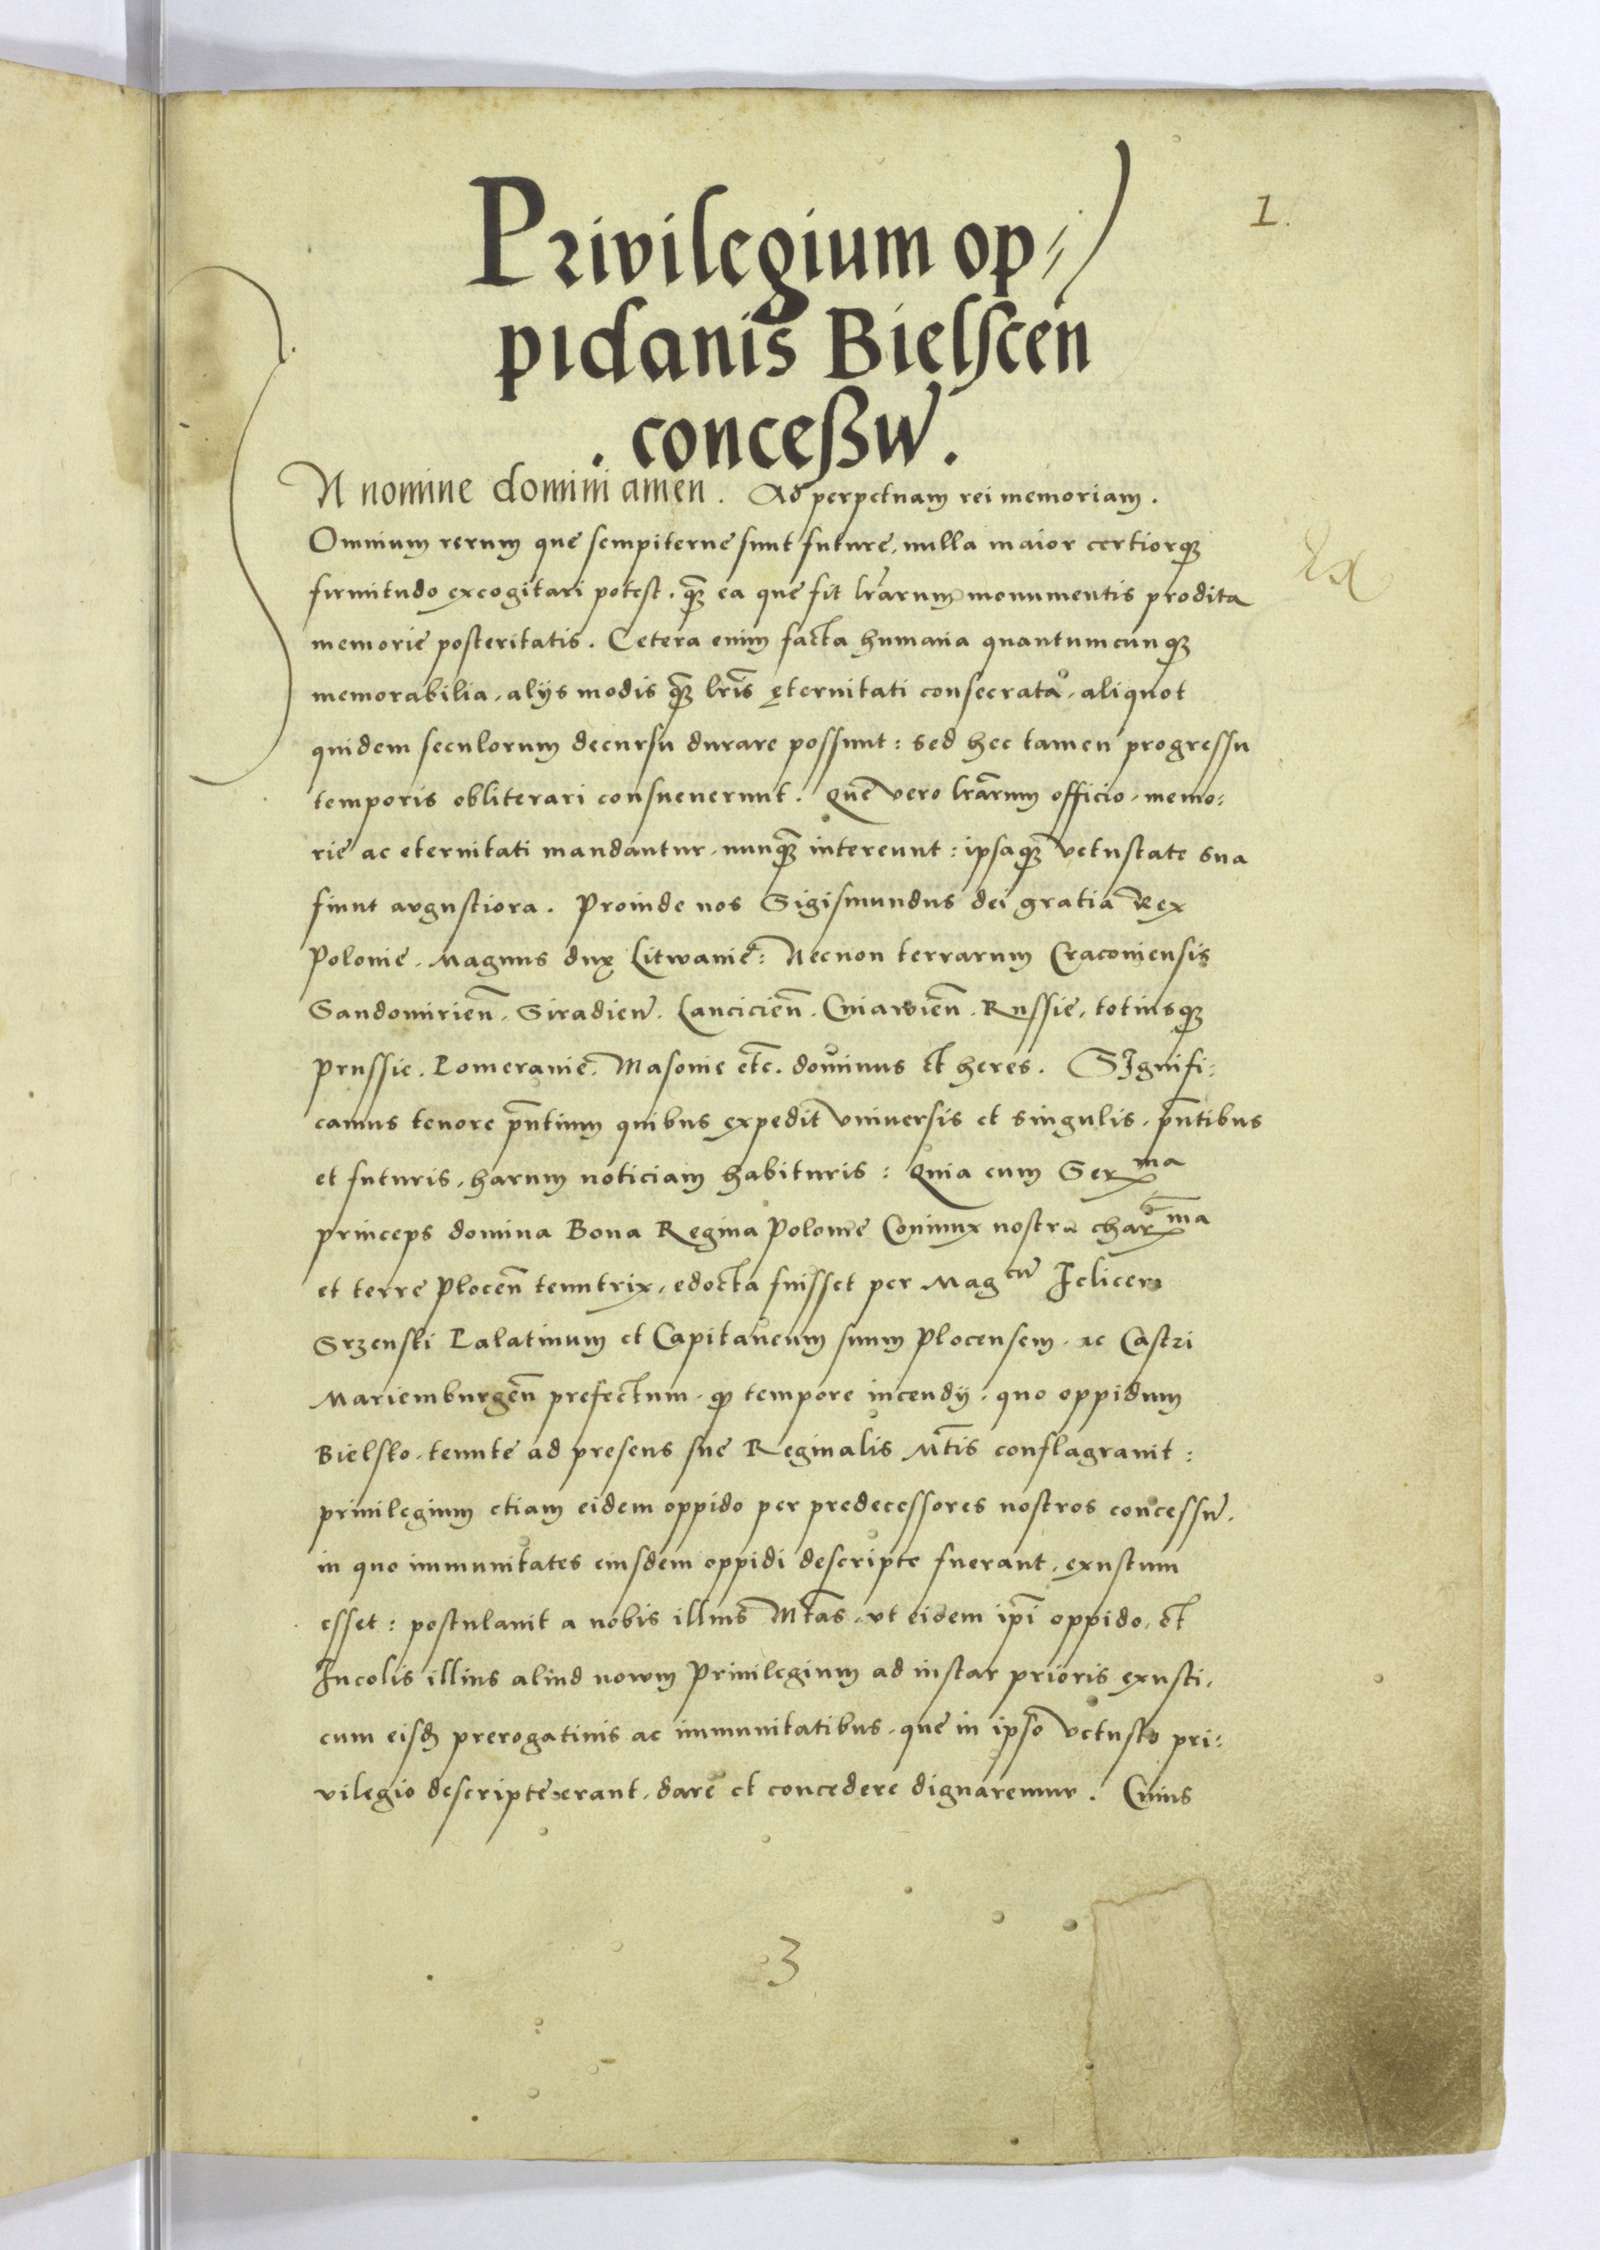 1.
Privilegium op=
pidanis Bielscen
. concessu̅ .
In nomine domini amen. Ad perpetuam rei memoriam.
Omnium rerum que sempiterne sunt future, nulla maior certiorq̨
firmitudo excogitari potest, q̨̄ ea que fit lr̄arum monumentis prodita
memorie posteritatis. Cetera enim facta humana quantumcunq̨
memorabilia, alijs modis q̨̄ lr̄is ęternitati consecrata, aliquot
quidem seculorum decursu durare possunt: sed hec tamen progressu
temporis obliterari consueuerunt. Que vero lr̄arum officio, memo=
rie ac eternitati mandantur, nunq̨̄ intereunt: ipsaq̨ vetustate sua
fiunt avgustiora. Proinde nos Sigismundus dei gratia Rex
Polonie, Magnus dux Litwanie: Necnon terrarum Cracouiensis
Sandomirien̄, Siradien̄, Lancicien̄, Cuiawien̄, Russie, totiusq̨
Prussie, Pomeranie, Masouie etc̄. dominus et heres. SIgnifi=
camus tenore pn̄tium quibus expedit vniuersis et singulis, pn̄tibus
et futuris, harum noticiam habituris: Quia cum Ser ma
princeps domina Bona Regina Polonie Coniunx nostra char ma
et terre Plocen̄ tenutrix, edocta fuisset per Mag cu̅ Felicem
Srzenski Palatinum et Capitaneum suum Plocensem, ac Castri
Mariemburgen̄ prefectum, q̨ tempore incendij, quo oppidum
Bielsko, tenute ad presens sue Reginalis Mt̄is conflagrauit:
priuilegium etiam eidem oppido per predecessores nostros concessu̅,
in quo immunitates eiusdem oppidi descripte fuerant, exustum
esset: postulauit a nobis illius Mt̄as, vt eidem ip̄i oppido, et
Incolis illius aliud nowm Priuilegium ad instar prioris exusti,
cum eisd̄ prerogatiuis ac immunitatibus, que in ipso vetusto pri=
vilegio descripte erant, dare et concedere dignaremur. Cuius
3